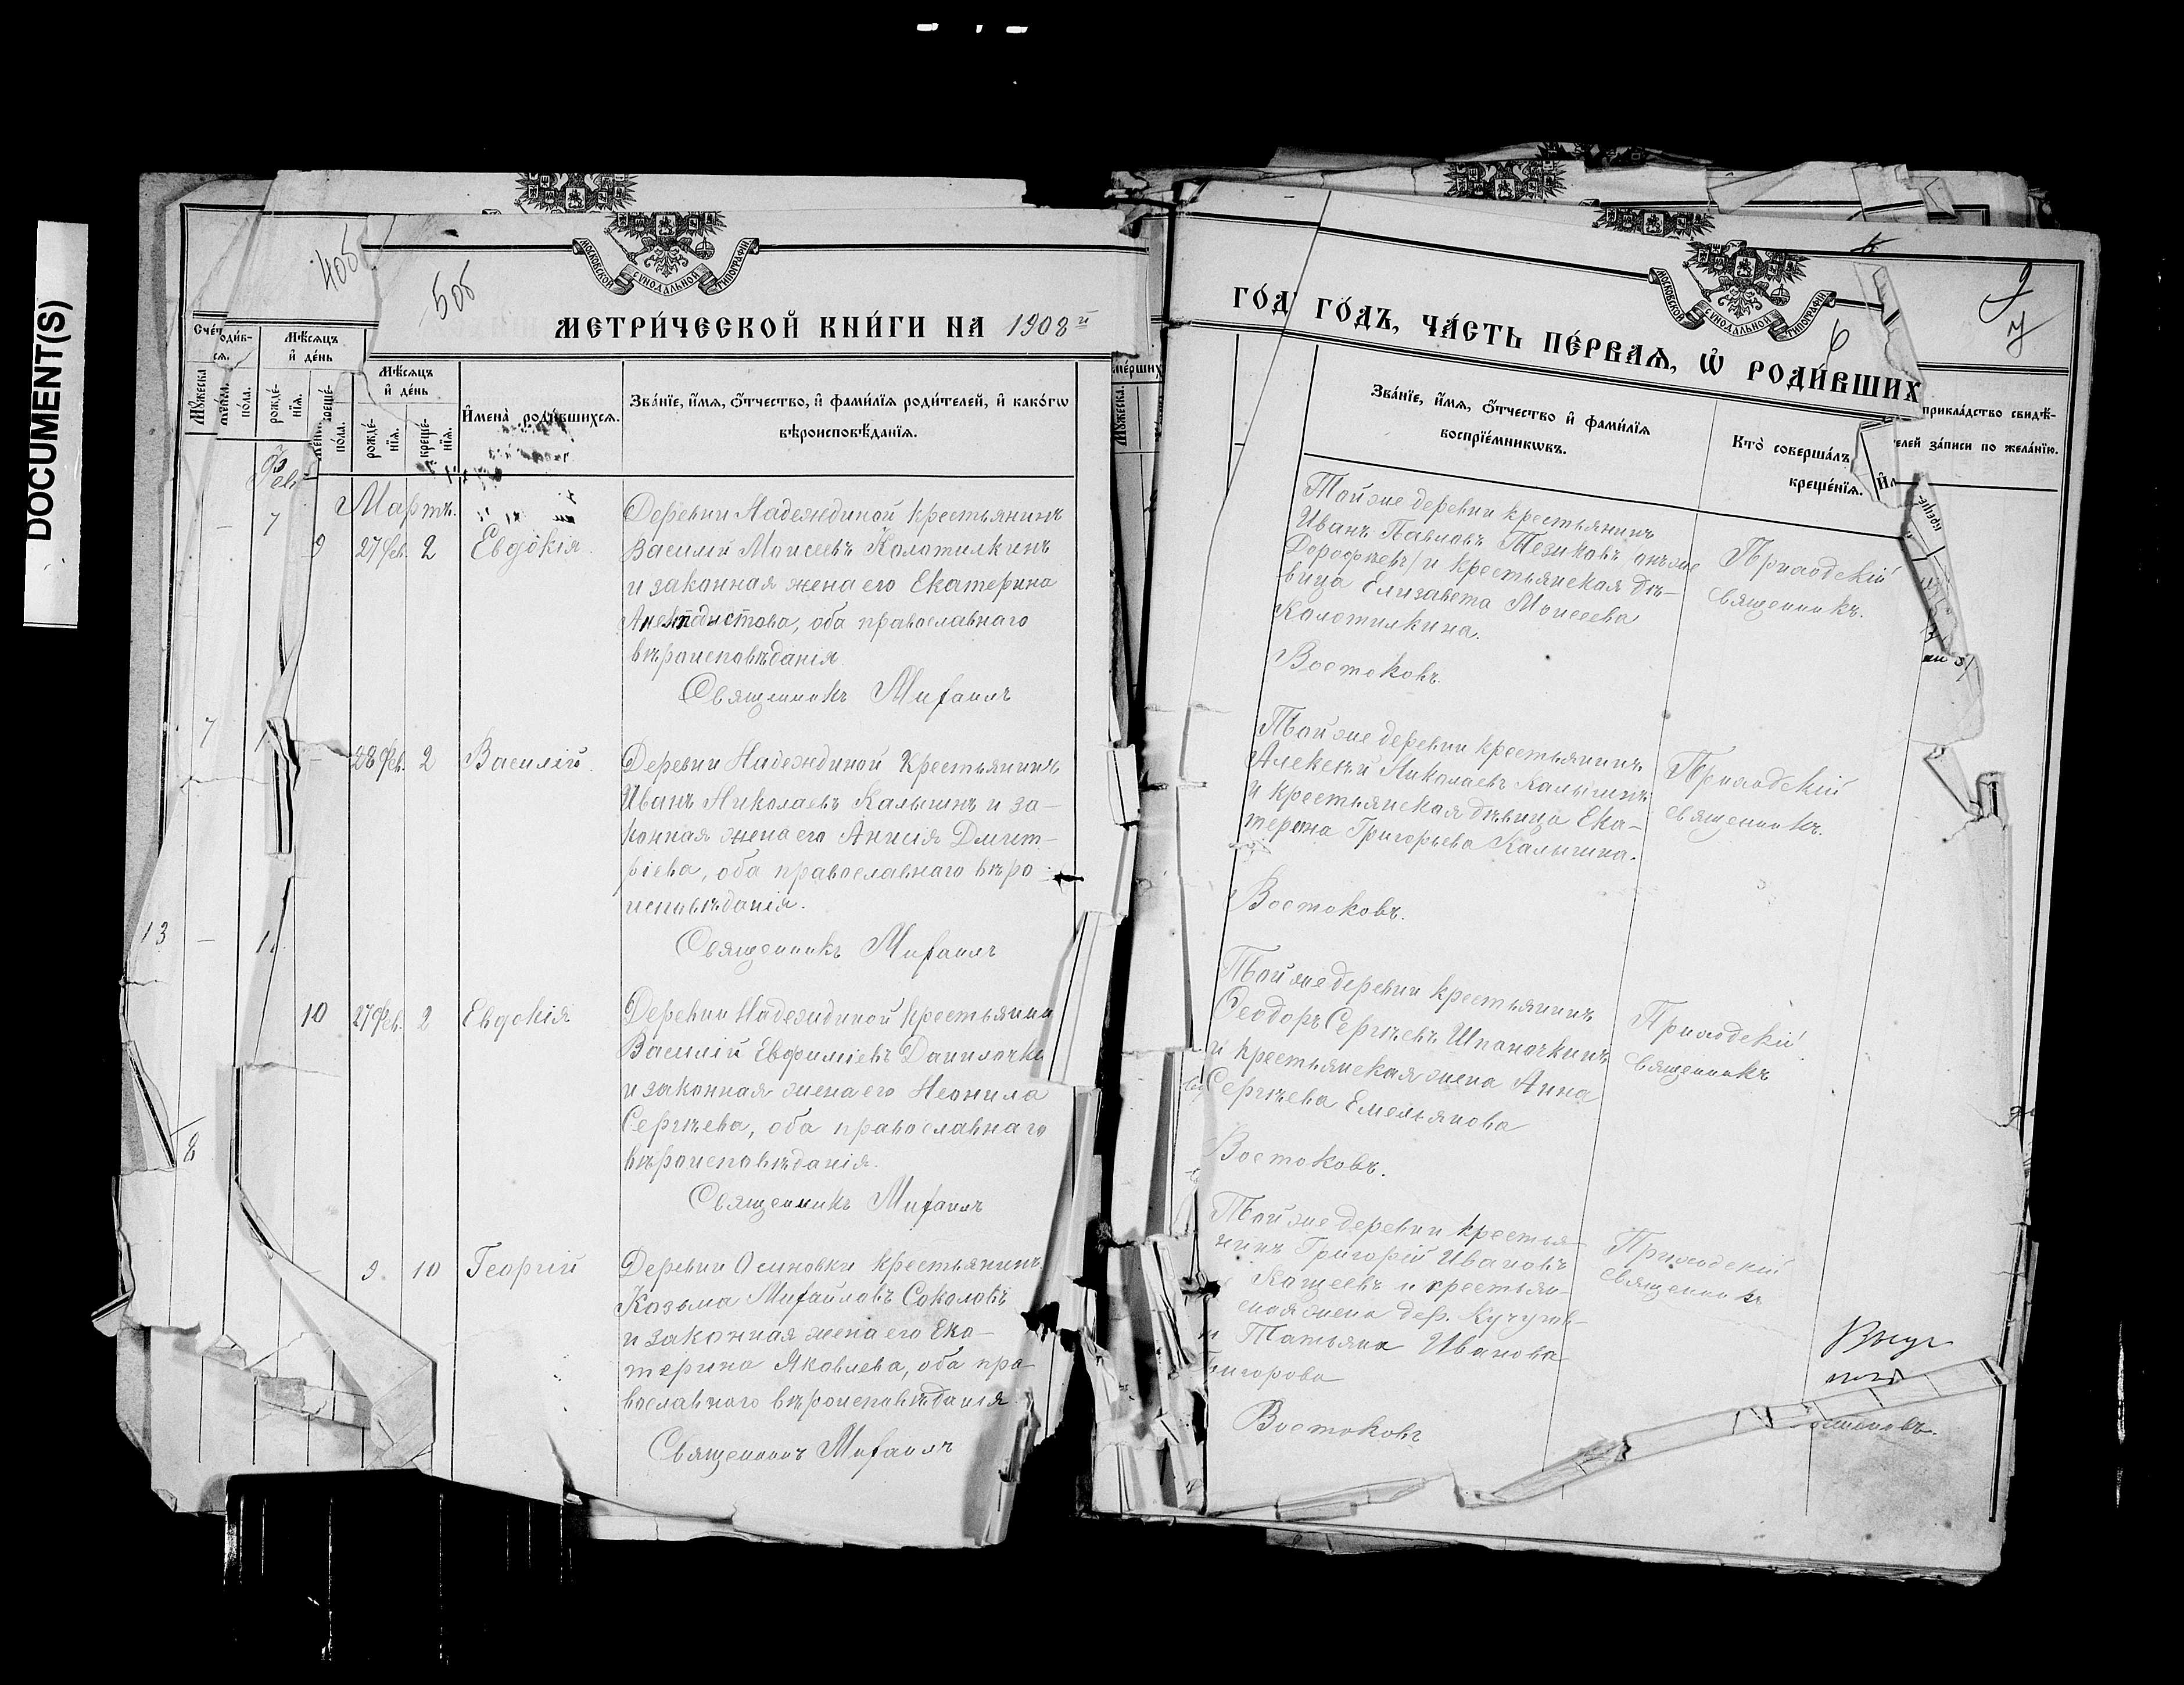 DOCUMENT(S)
40б
50б
МОСКОВСКОЙ СѴНОДАЛЬНОЙ ТИПОГРАФІИ
МЕТРИ́ЧЕСКОЙ КНИ́ГИ НА 1908й
Мѣ́сяцъ
и҆ де́нь
рожде́-
нїѧ.
креще́-
нїѧ.
И҆мена̀ роди́вшихсѧ.
Зва́нїе, и҆́мѧ, ѻ҆́тчество, и҆ фами́лїѧ роди́телей, и҆ како́гѡ
вѣроисповѣ́данїѧ.
Мартъ.
9 27 фев. 2 Евдокія
Деревни Надеждиной крестьянинъ
Василий Моисеевъ Колотилкинъ
и законная жена его Екатерина
оба православнаго
вѣроисповѣданія
Священникъ Михаилъ
28 фев. 2 Василій
Деревни Надеждиной крестьянинъ
Иванъ Николаевъ Калыгинъ и за-
конная жена его Анисія Дмит-
ріева, оба православнаго вѣро
исповѣданія.
Священникъ Михаилъ
10 27 фев. 2 Евдокія
Деревни Надеждиной крестьянин
Василій Евфиміевъ Данилочки
и законная жена его Неонила
Сергѣева, оба православнаго
вѣроисповѣданія.
Священникъ Михаилъ
9 10 Георгій
Деревни Осиновки крестьянинъ
Козьма Михайловъ Соколовъ
и законная жена его Ека-
терина Яковлева, оба пра-
вославного вѣроисповѣданія
Священникъ Михаилъ
7
13
8
ГО́Д ГО́ДЪ, ЧА́СТЬ ПЕ́РВАѦ, Ѡ҆ РОДИ́ВШИХ
МОСКОВСКОЙ СѴНОДАЛЬНОЙ ТИПОГРАФІИ
6
7
Зва́нїе, и҆́мѧ, ѻ҆́тчество и҆ фами́лїѧ
воспрїе́мникѡвъ.
Кто̀ соверша́лъ
креще́нїѧ.
прикла́дство свидѣ́-
елей за́писи по жела́нїю.
Той же деревни крестьянинъ
Иванъ Павловъ Тезиковъ онъ же
Дорофѣевъ/ и крестьянская дѣ-
вица Елизавета Моисеева
Колотилкина.
Востоковъ.
Приходскій
священникъ.
Той же деревни крестьянинъ
Алексѣй Николаевъ Калыгинъ
и крестьянская дѣвица Ека-
терина Григорьева Калыгина.
Востоковъ.
Приходскій
священникъ.
Той же деревни крестьянинъ
Ѳеодоръ Сергѣевъ Шпаночкинъ
и крестьянская жена Анна
Сергѣева Емельянова
Востоковъ.
Приходскій
священникъ
Той же деревни крестья-
нинъ Григорій Ивановъ
Кощеевъ и крестьян-
ская жена дер.
Татьяна Иванова
Востоковъ
Приходскій
священникъ